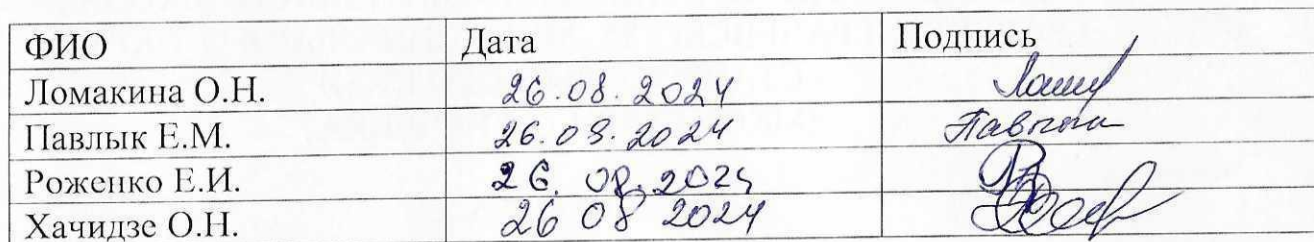 ФИО Дата Подпись
Ломакина О.Н. 26.08.2024
Павлык Е.М. 26.08.2024
Роженко Е.И. 26.08.2024
Хачидзе О.Н. 26 08 2024